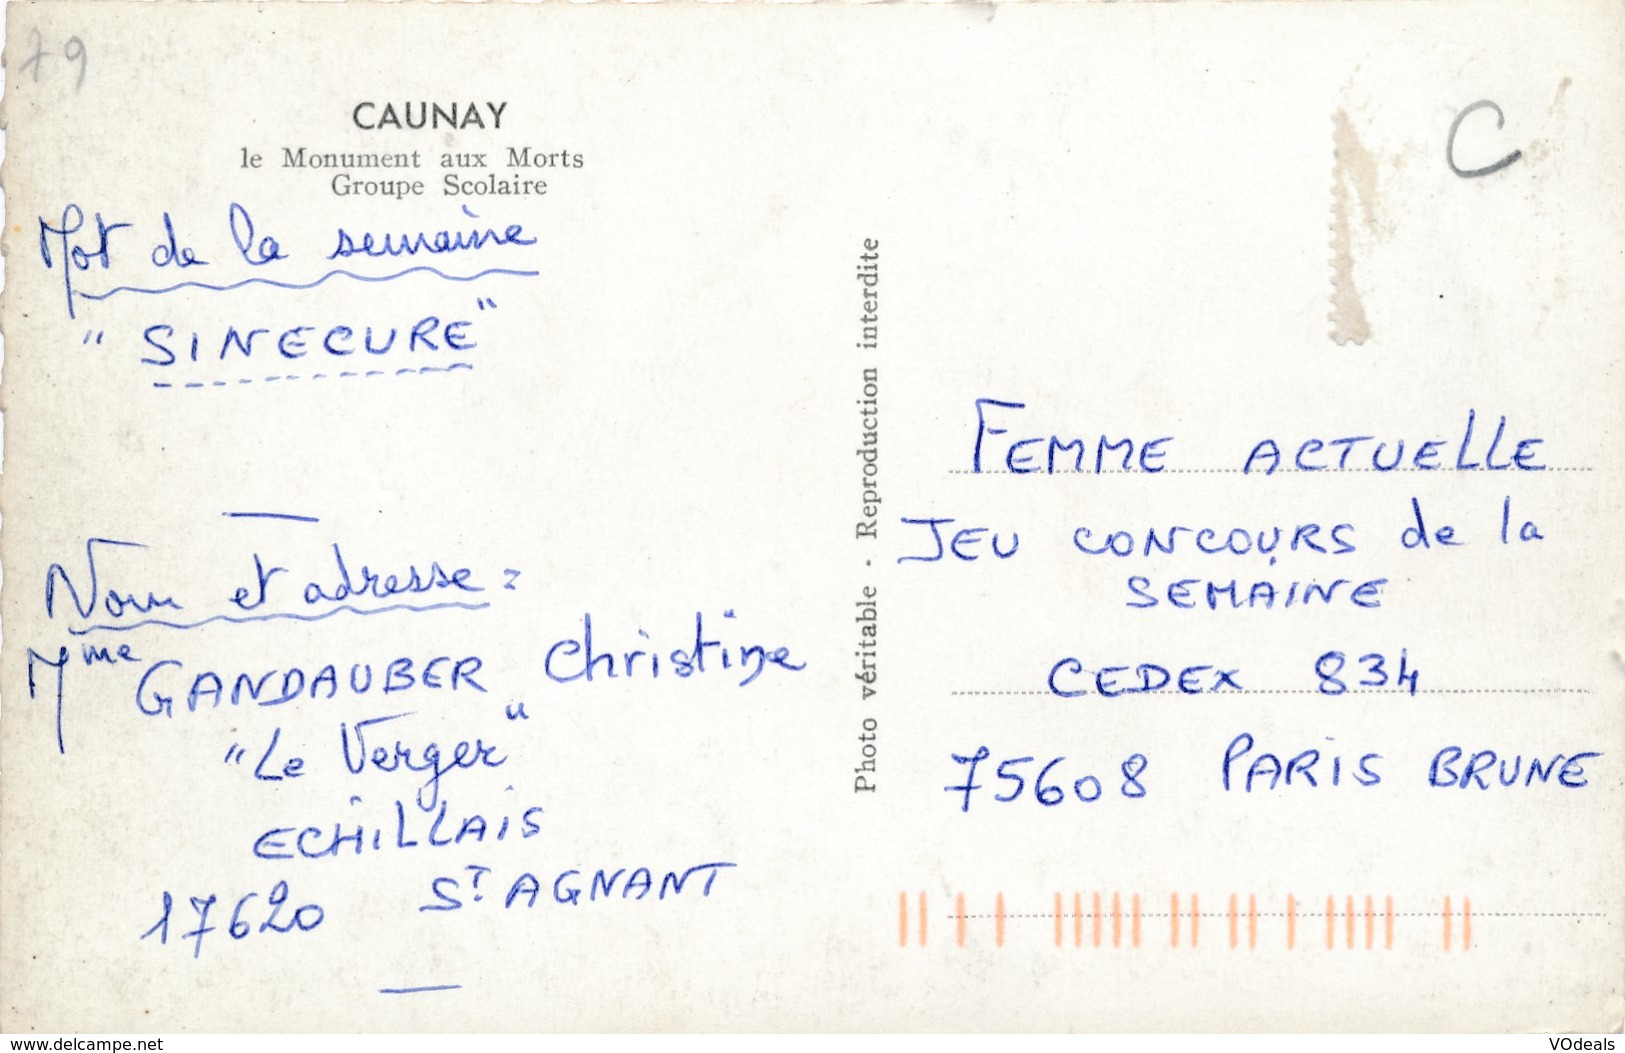 79
CAUNAY
le Monument aux Morts
Groupe Scolaire
Mot de la semaine
"SINECURE"
Nom et adresse :
Mme GANDAUBER Christine
"Le Verger"
ECHILLAIS
17620 ST AGNANT
Photo véritable - Reproduction interdite
C
FEMME ACTUELLE
JEU CONCOURS de la
SEMAINE
CEDEX 834
75608 PARIS BRUNE
www.delcampe.net
VOdeals